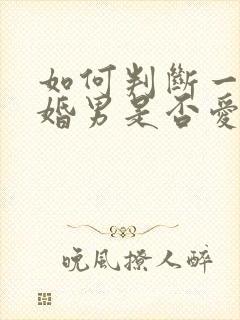 如何判斷一
婚男是否愛
晚風撩人醉